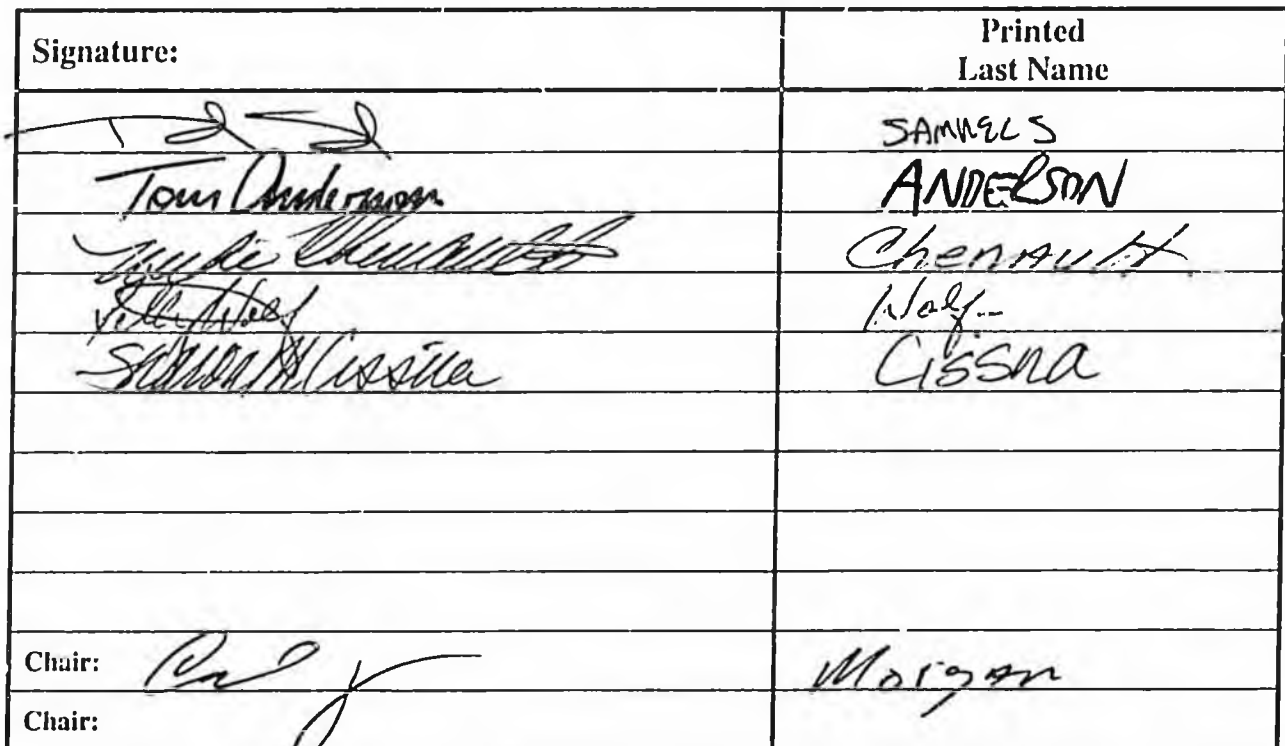 Signature:
Printed
Last Name
SAMUELS
Tom Anderson
ANDERSON
Chenault
Sharon M Cissna
Cissna
Chair:
Morgan
Chair: